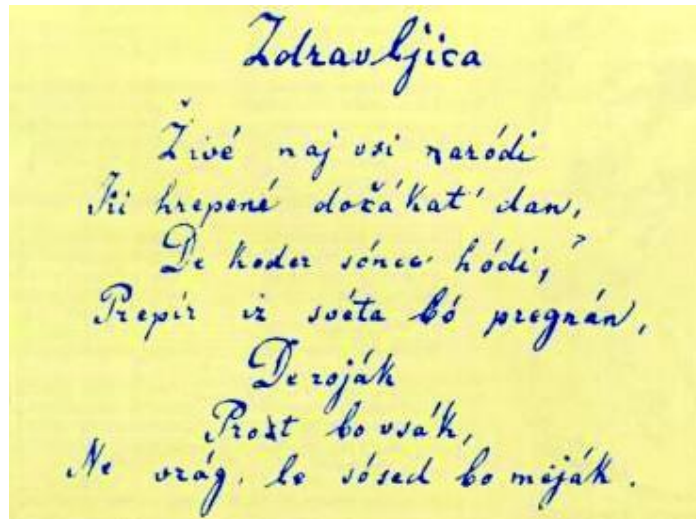 Zdravljica
Živé naj vsi naródi
Ki hrepené dočákat' dan,
De koder sónce hódi,
Prepír iz svéta bó pregnán,
De roják
Prost bo vsák,
Ne vrág, le sósed bo meják.